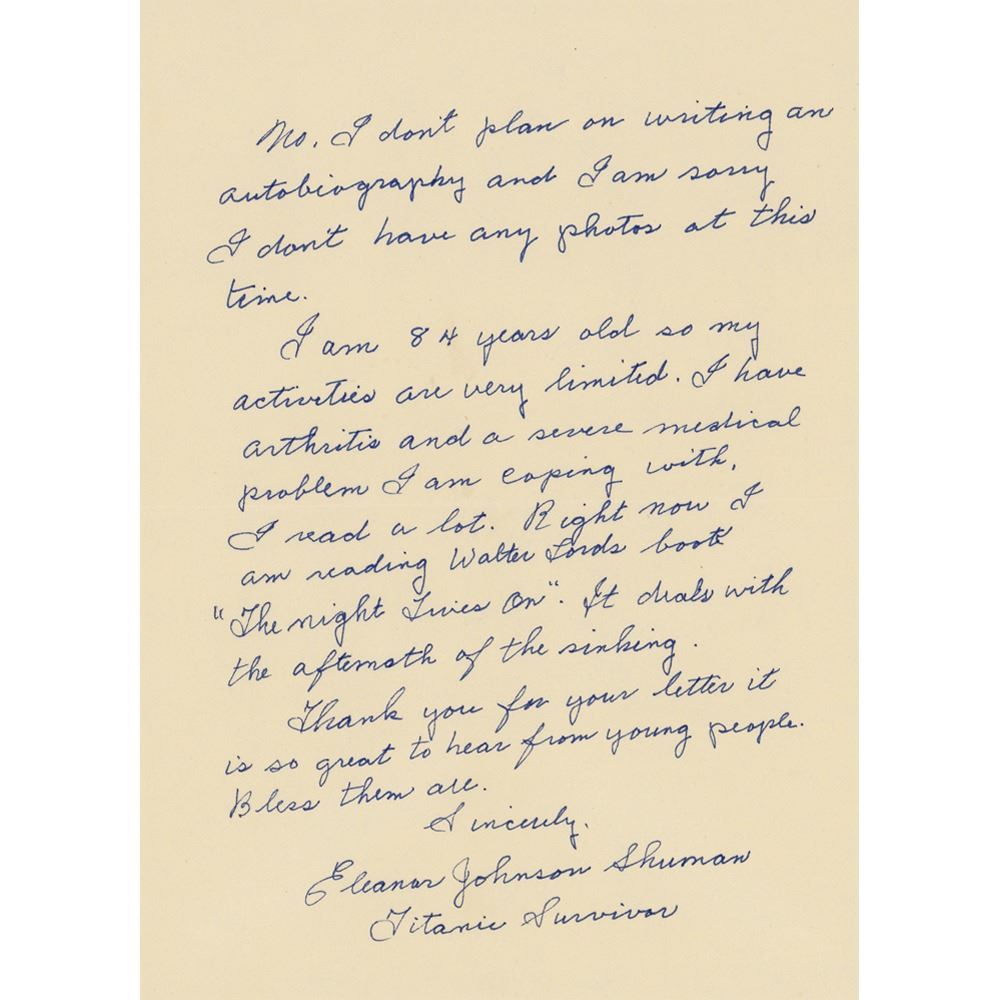 No, I don't plan on writing an
autobiography and I am sorry
I don't have any photos at this
time.
I am 84 years old so my
activities are very limited. I have
arthritis and a severe medical
problem I am coping with.
I read a lot. Right now I
am reading Walter Lords book
"The night Lives On". It deals with
the aftermath of the sinking.
Thank you for your letter it
is so great to hear from young people.
Bless them all.
Sincerely,
Eleanor Johnson Shuman
Titanic Survivor